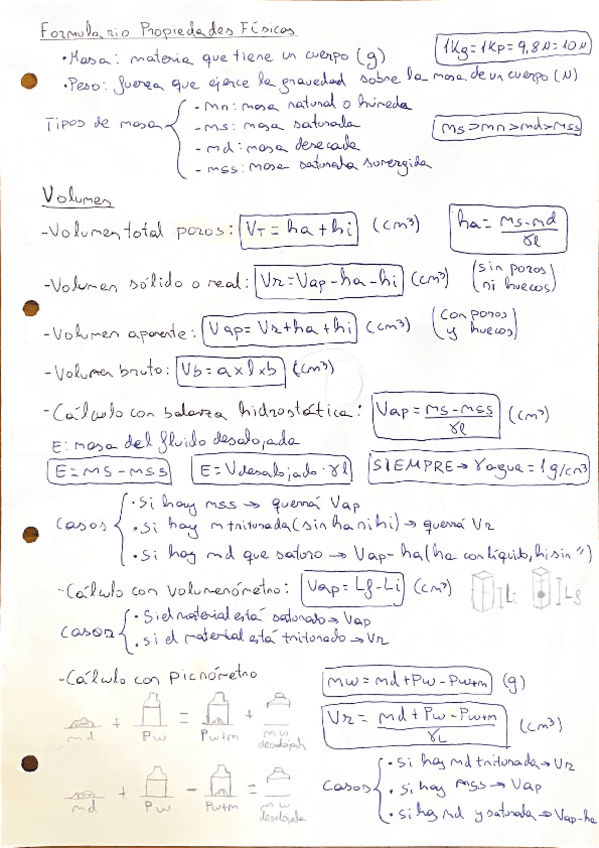 Formulario Propiedades Físicas
• Masa: materia que tiene un cuerpo (g)
1Kg = 1Kp = 9,8N = 10N
• Peso: fuerza que ejerce la gravedad sobre la masa de un cuerpo (N)
Tipos de masa
- mn: masa natural o húmeda
- ms: masa saturada
- md: masa desecada
- mss: masa saturada sumergida
ms > mn > md > mss
Volumen
- Volumen total poros: VT = ha + hi (cm³)
ha = ms - md / γl
- Volumen sólido o real: Vr = Vap - ha - hi (cm³) (sin poros ni huecos)
- Volumen aparente: Vap = Vr + ha + hi (cm³) (con poros y huecos)
- Volumen bruto: Vb = a x l x b (cm³)
- Cálculo con balanza hidrostática: Vap = ms - mss / γl (cm³)
E: masa del fluido desalojada
E = ms - mss E = Vdesalojado · γl SIEMPRE → γagua = 1g/cm³
Casos
• Si hay mss → querrá Vap
• Si hay m triturada (sin ha ni hi) → querrá Vr
• Si hay md que saturo → Vap - ha (ha con líquido, hi sin ")
- Cálculo con volumenómetro: Vap = Lf - Li (cm³)
Li Lf
Casos
• Si el material está saturado → Vap
• si el material está triturado → Vr
- Cálculo con picnómetro
mw = md + Pw - Pw+m (g)
md + Pw = Pw+m + mw desalojada
Vr = md + Pw - Pw+m / γL (cm³)
md + Pw - Pw+m = mw desalojada
Casos
• si hay md triturada → Vr
• si hay mss → Vap
• si hay md y saturada → Vap - ha